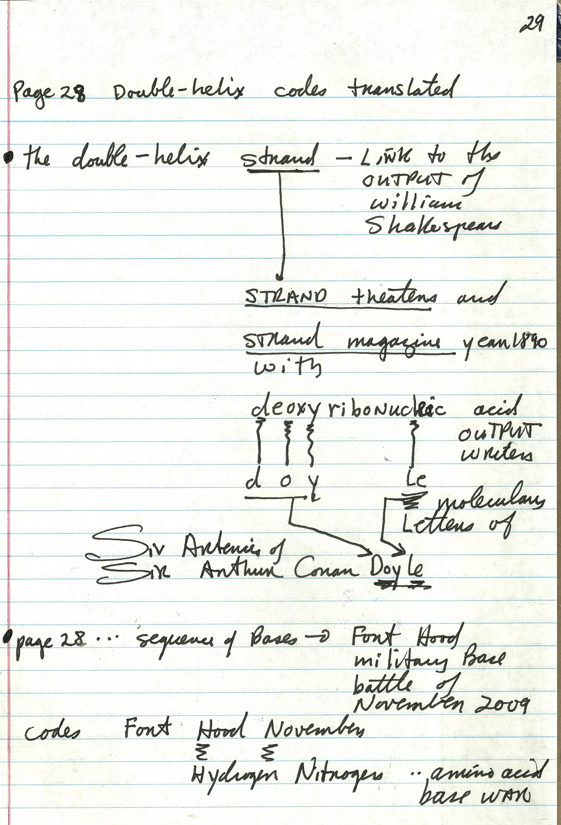 29
Page 28 Double-helix codes translated
• the double-helix strand – LINK to the
OUTPUT of
william
Shakespeare
STRAND theaters and
STRAND magazine year 1890
with
deoxyribonucleic acid
OUTPUT
writers
d o y le
molecular
Letters of
Sir Arteries of
Sir Arthur Conan Doyle
• page 28 ... sequence of Bases → Fort Hood
military Base
battle of
November 2009
codes Fort Hood November
Hydrogen Nitrogen .. amino acid
base WAR